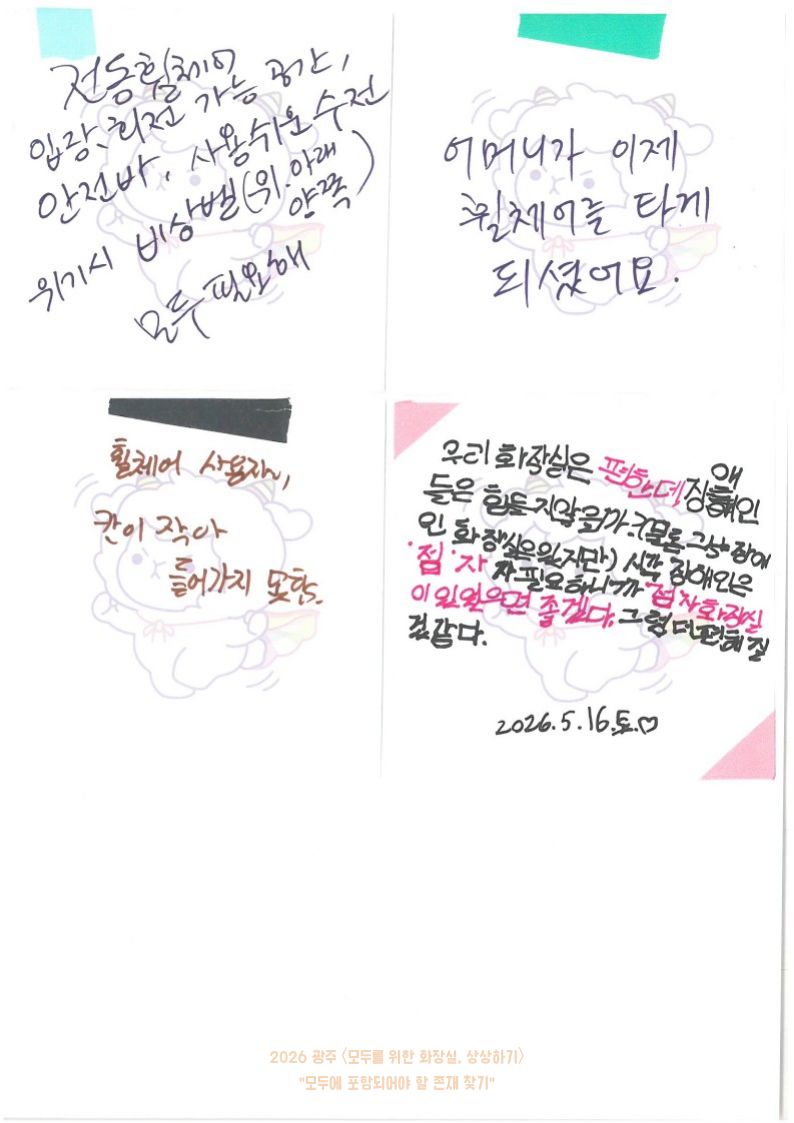 전동휠체어
입장, 회전 가능 공간,
안전바, 사용쉬운 수전
위기시 비상벨(위.아래
양쪽)
모두 필요해
어머니가 이제
휠체어를 타게
되셨어요.
휠체어 사용자,
칸이 작아
들어가지 못함.
우리 화장실은 편한데 장애인
들은 힘들지않을까?(물론 장애
인 화장실은있지만) 시각 장애인은
'점'자 가필요하니까 점자화장실
이 있으면 좋겠다. 그럼 더편해질
것같다.
2026.5.16.토.♡
2026 광주 <모두를 위한 화장실, 상상하기>
"모두에 포함되어야 할 존재 찾기"